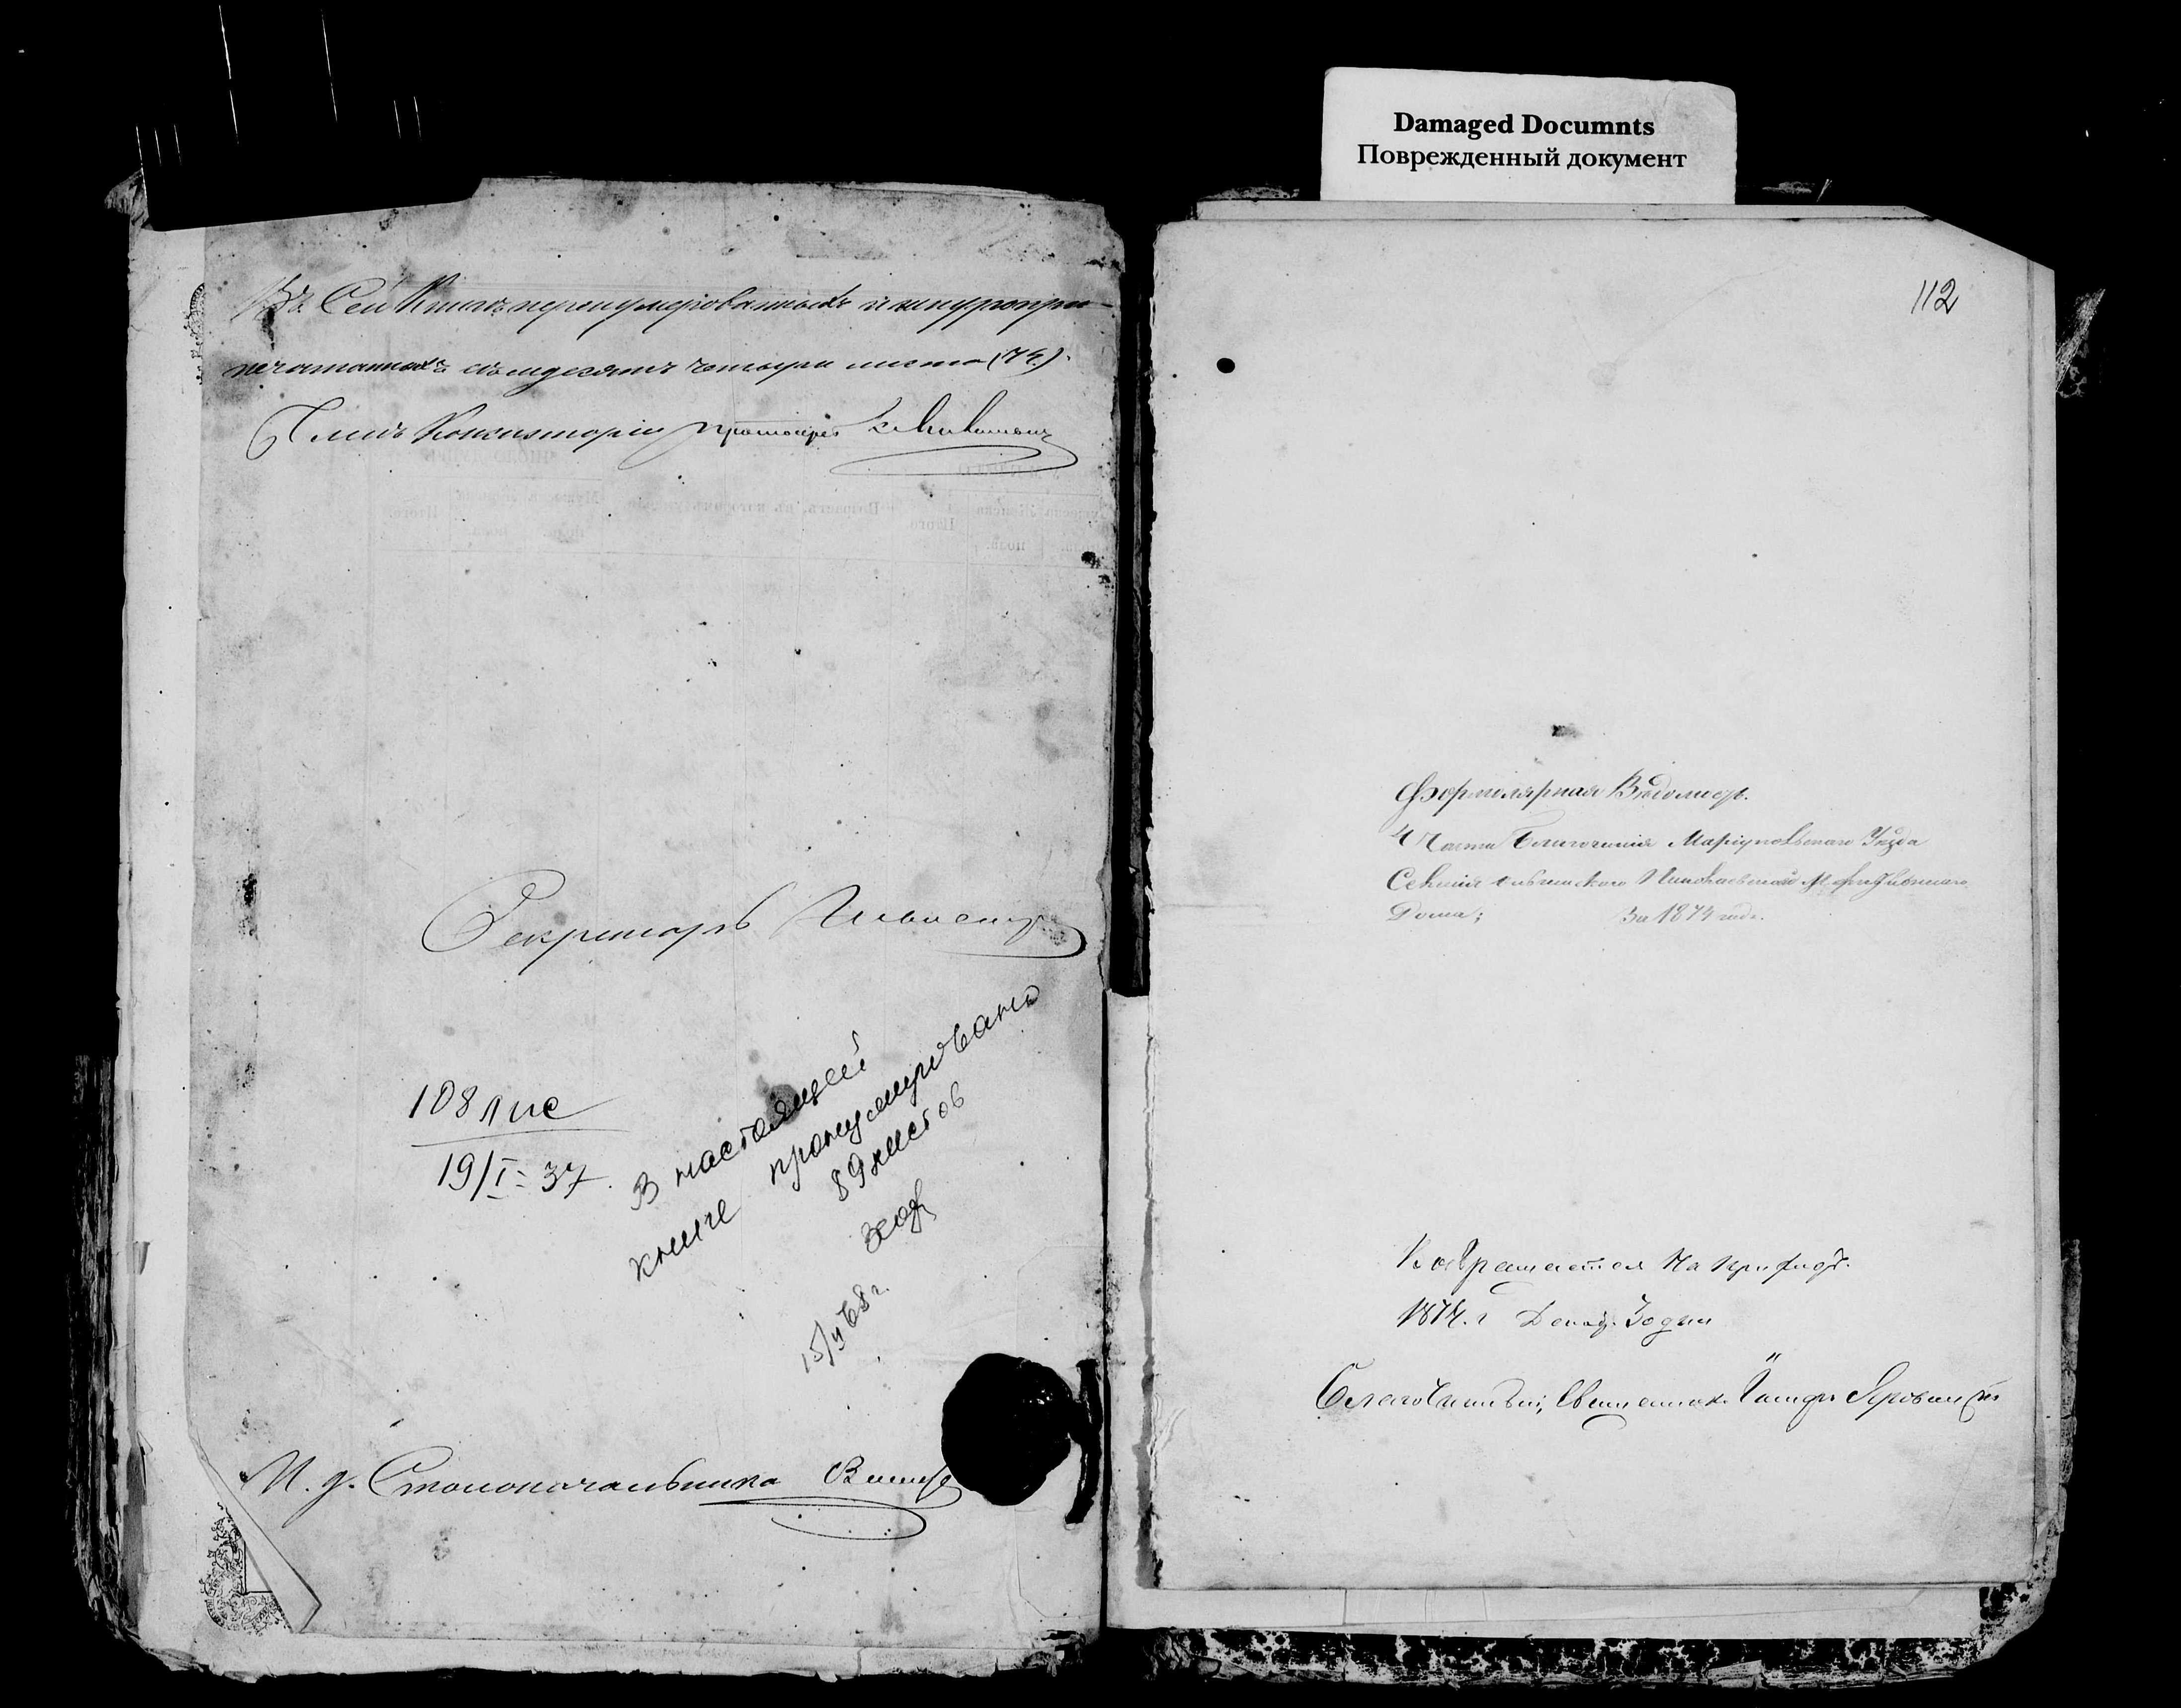 Damaged Documnts
Поврежденный документ
Въ Сей Книгѣ перенумерованныхъ и шнуропри-
печатанныхъ семдесятъ четыре листа (74).
Членъ Консисторіи Протоіерей
Секретарь
108 лис
19/I-37.
В настоящей
книге пронумеровано
89 листов
15/II 68 г.
И. д. Столоначальника
112
Формулярная Вѣдомость.
4 Части Благочинія Маріупольскаго Уѣзда
Селенія Николаевской Молитвеннаго
Дома; За 1874 годъ.
Возвращается На приходъ.
1874. г Декаб. 30 дня
Благочинный, Священникъ